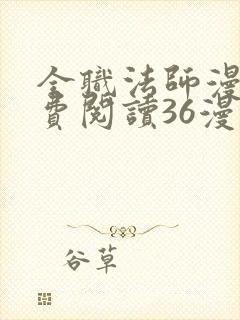 全職法師漫
費閱讀36漫
谷草